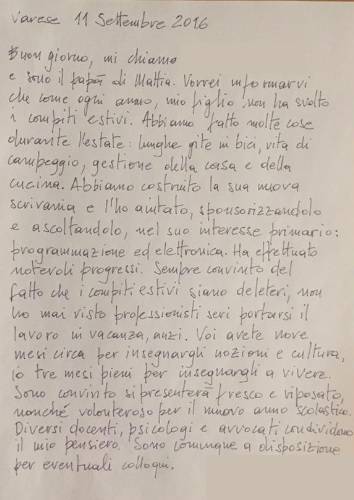 Varese 11 Settembre 2016
Buon giorno, mi chiamo
e sono il papà di Mattia. Vorrei informarvi
che come ogni anno, mio figlio non ha svolto
i compiti estivi. Abbiamo fatto molte cose
durante l'estate: lunghe gite in bici, vita di
campeggio, gestione della casa e della
cucina. Abbiamo costruito la sua nuova
scrivania e l'ho aiutato, sponsorizzandolo
e ascoltandolo, nel suo interesse primario:
programmazione ed elettronica. Ha effettuato
notevoli progressi. Sempre convinto del
fatto che i compiti estivi siano deleteri, non
ho mai visto professionisti seri portarsi il
lavoro in vacanza, anzi. Voi avete nove
mesi circa per insegnargli nozioni e cultura,
io tre mesi pieni per insegnargli a vivere.
Sono convinto si presenterà fresco e riposato,
nonché volonteroso per il nuovo anno scolastico.
Diversi docenti, psicologi e avvocati condividono
il mio pensiero. Sono comunque a disposizione
per eventuali colloqui.